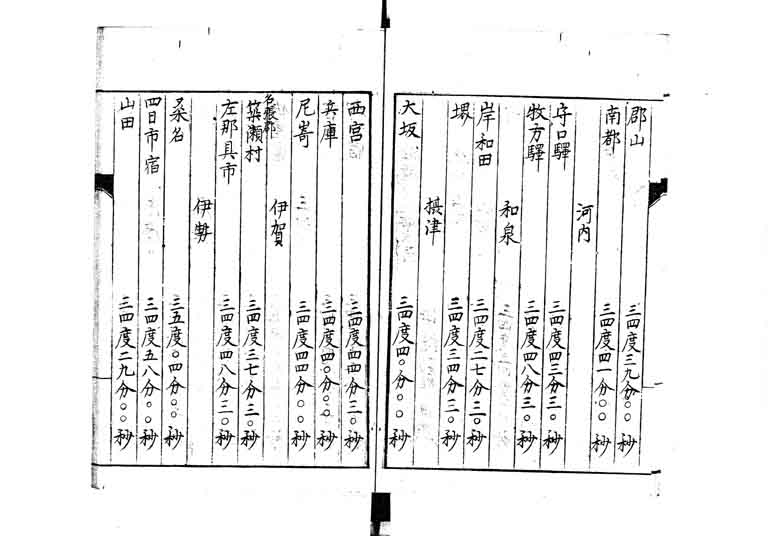 郡山 三四度三九分〇〇秒
南都 三四度四一分〇〇秒
河内
守口驛 三四度四三分三〇秒
牧方驛 三四度四八分三〇秒
和泉
岸和田 三四度二七分三〇秒
堺 三四度三四分三〇秒
摂津
大坂 三四度四〇分〇〇秒
西宮 三四度四四分三〇秒
兵庫 三四度四〇分〇〇秒
尼嵜 三四度四四分〇〇秒
伊賀
名張郡
簗瀬村 三四度三七分三〇秒
左那具市 三四度四八分三〇秒
伊勢
桑名 三五度〇四分〇〇秒
四日市宿 三四度五八分〇〇秒
山田 三四度二九分〇〇秒